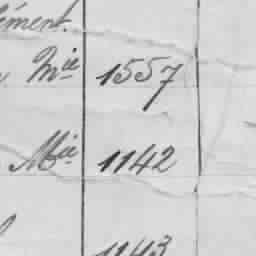 ément.
Mie 1557
Mie 1142
1143